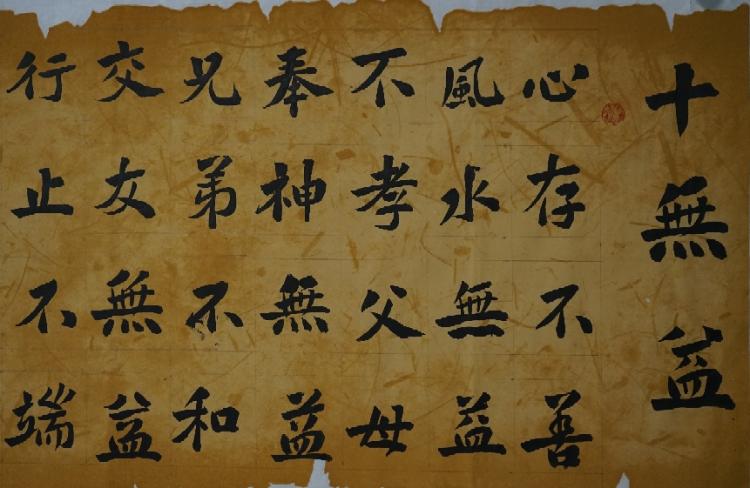 十無益
心存不善
風水無益
不孝父母
奉神無益
兄弟不和
交友無益
行止不端